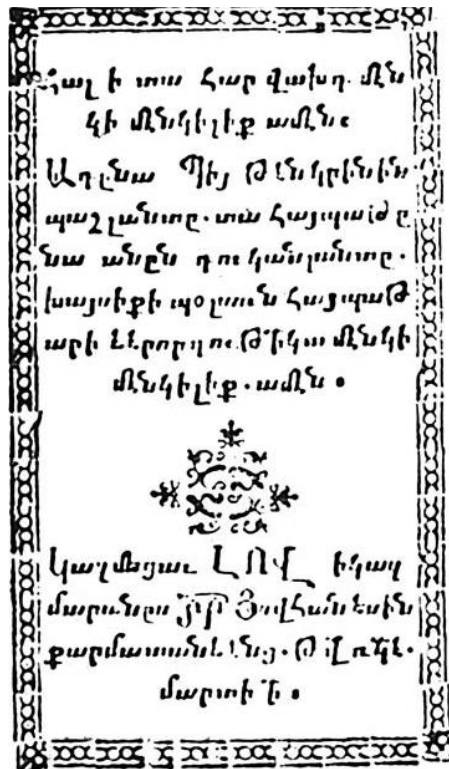 Հալ ի տա Հար վախդ. մէն
կի մէնկիլիք ամէն:
Ադընա Պիյ Թէնկրինին.
պաշլանտը. տա Հայպաթը
նա անըն դուկանլանտը.
խայսիքի պօլսուն Հայպաթ
արի Էրրորդութիկա մէնկի
մէնկիլիք. ամէն.
Կազմեցաւ ԼՈՎ
մարանըս Յովհաննէսին
քարմատանենց. ԹՎ ՌԿԷ.
մարտի Ի.